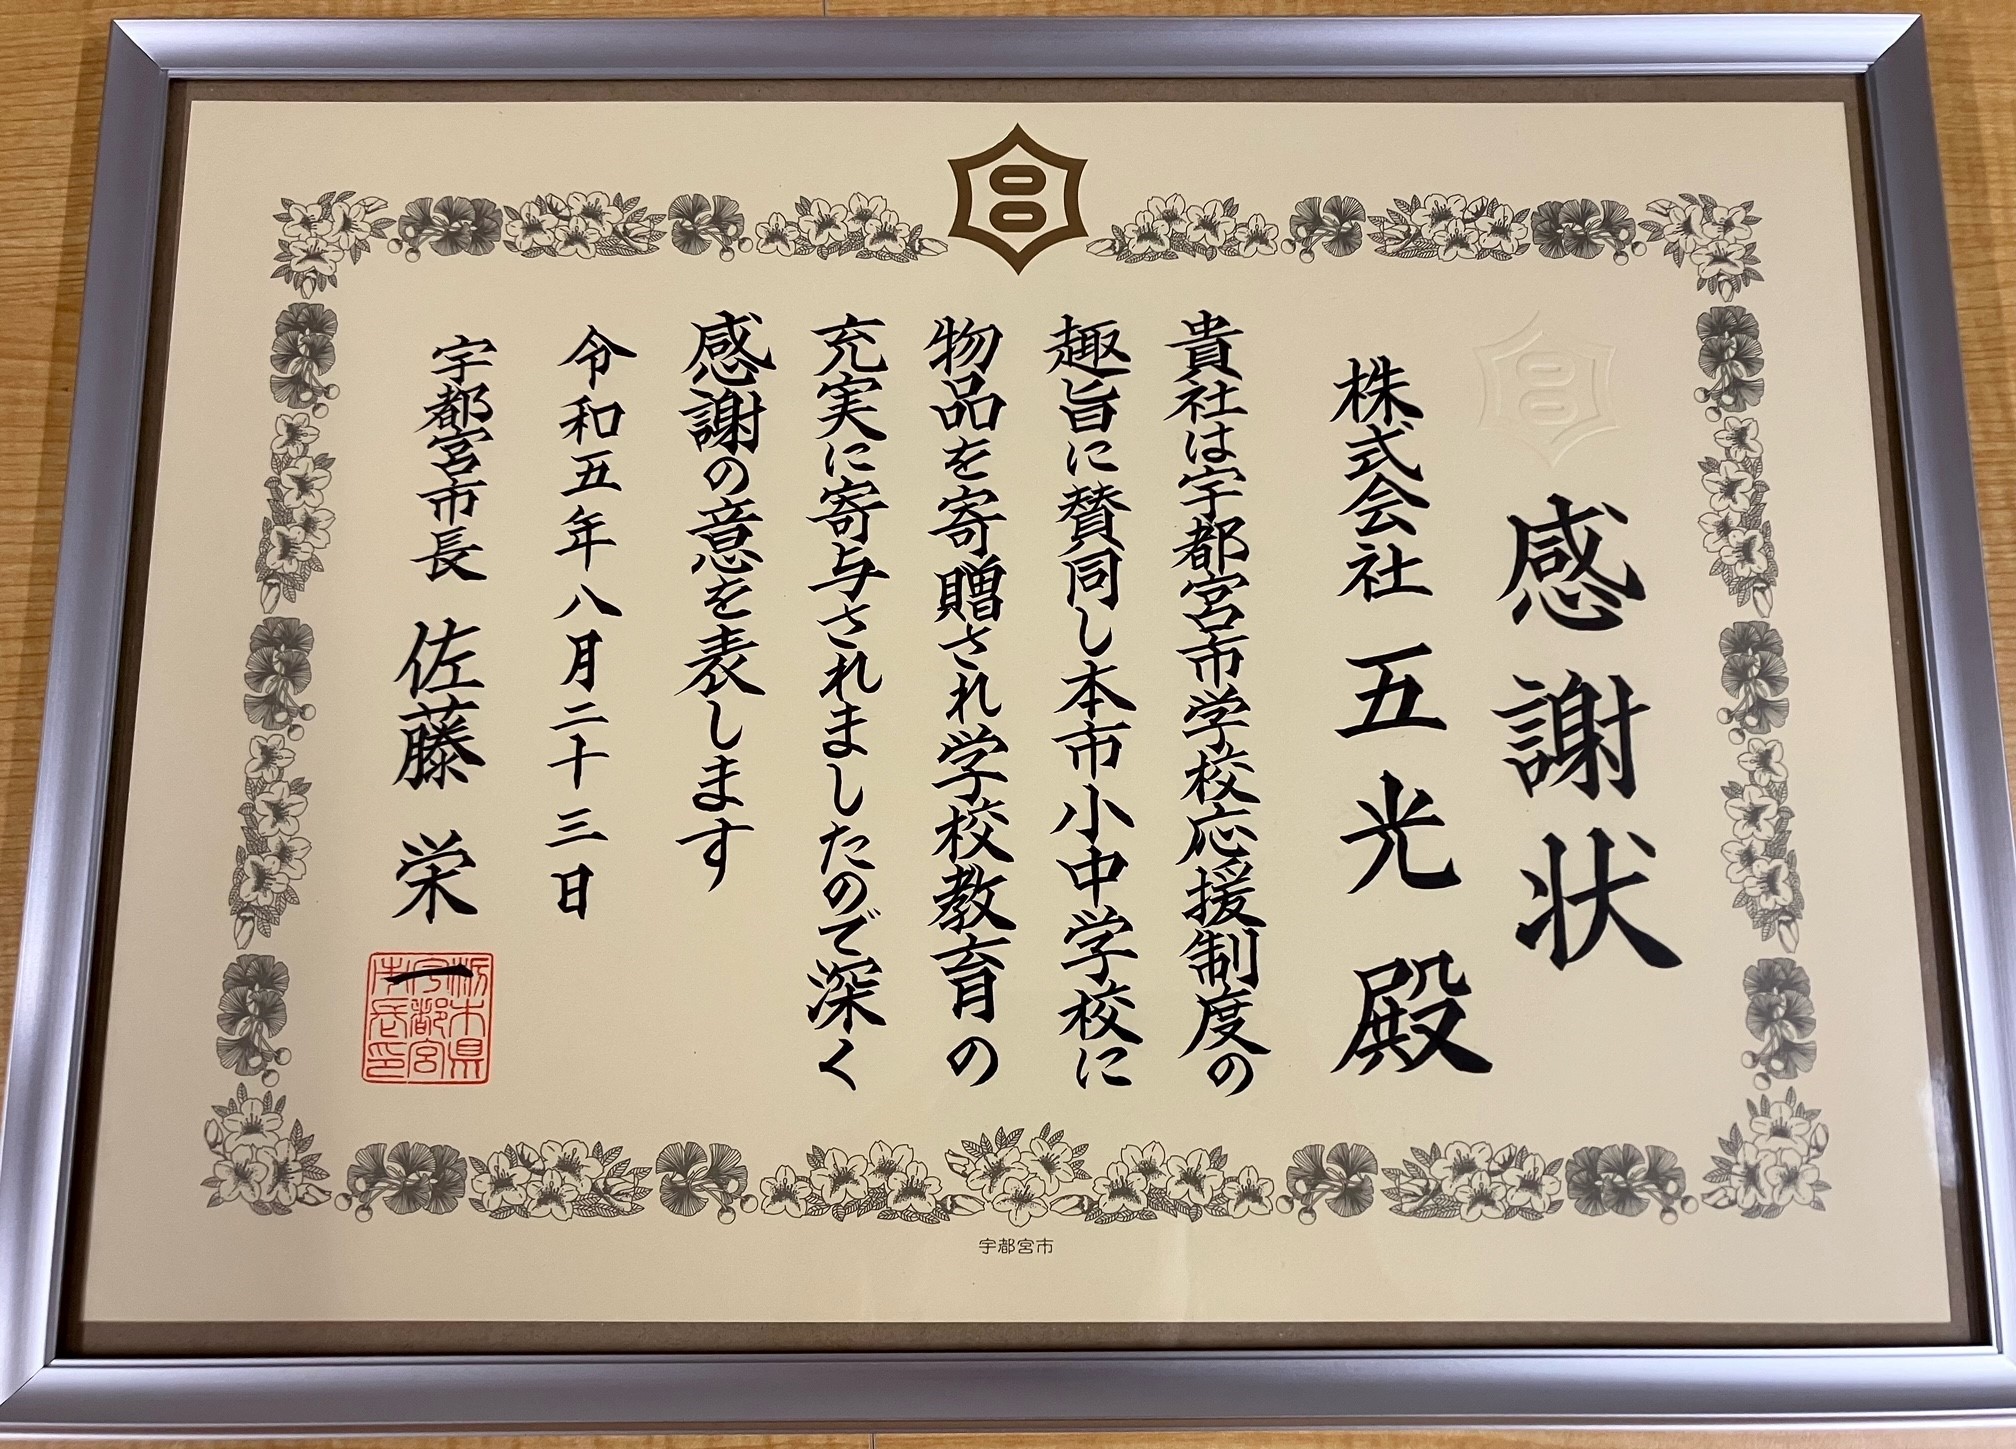 感謝状
株式会社 五光 殿
貴社は宇都宮市学校応援制度の
趣旨に賛同し本市小中学校に
物品を寄贈され学校教育の
充実に寄与されましたので深く
感謝の意を表します
令和五年八月二十三日
宇都宮市長 佐藤栄一
栃木県
宇都宮
市長印
宇都宮市